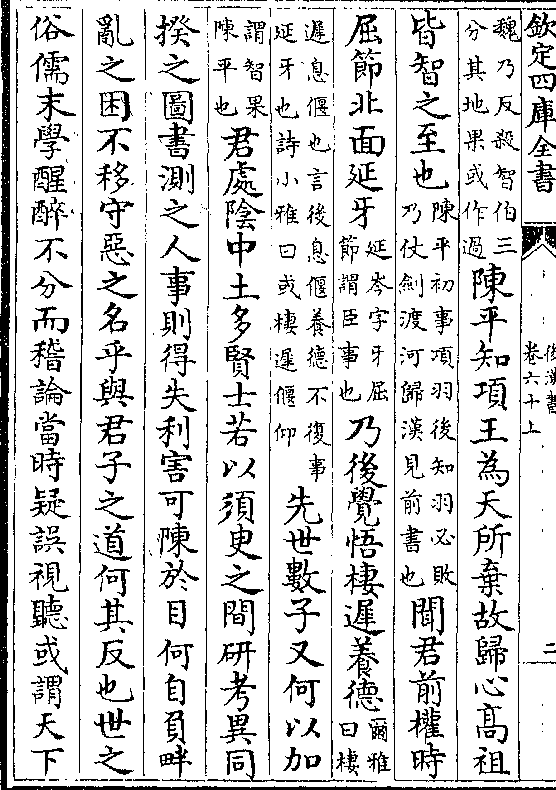 欽定四庫全書
後漢書
卷六十上
二
魏乃反殺智伯三
分其地果或作過
陳平知項王為天所棄故歸心髙祖
皆智之至也
陳平初事項羽後知羽必敗
乃仗劍渡河歸漢見前書也
聞君前權時
屈節北面延牙
延岑字牙屈
節謂臣事也
乃後覺悟棲遲養德
爾雅
曰棲
遲息偃也言後息偃養德不復事
延牙也詩小雅曰或棲遲偃仰
先世數子又何以加
謂智果
陳平也
君處陰中土多賢士若以須臾之間研考異同
揆之圖書測之人事則得失利害可陳於目何自負畔
亂之困不移守惡之名乎與君子之道何其反也世之
俗儒末學醒醉不分而稽論當時疑誤視聽或謂天下